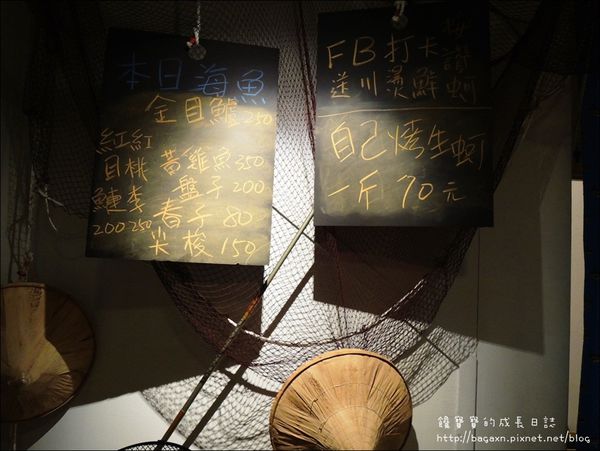 本日海魚
金目鱸 250
黃雞魚 350
盤子 200
春子 80
尖梭 150
紅目鰱 200
紅桃李 250
FB打卡按讚
送川燙鮮蚵
自己烤生蚵
一斤 70元
饅寶寶的成長日誌
http://bagaxn.pixnet.net/blog